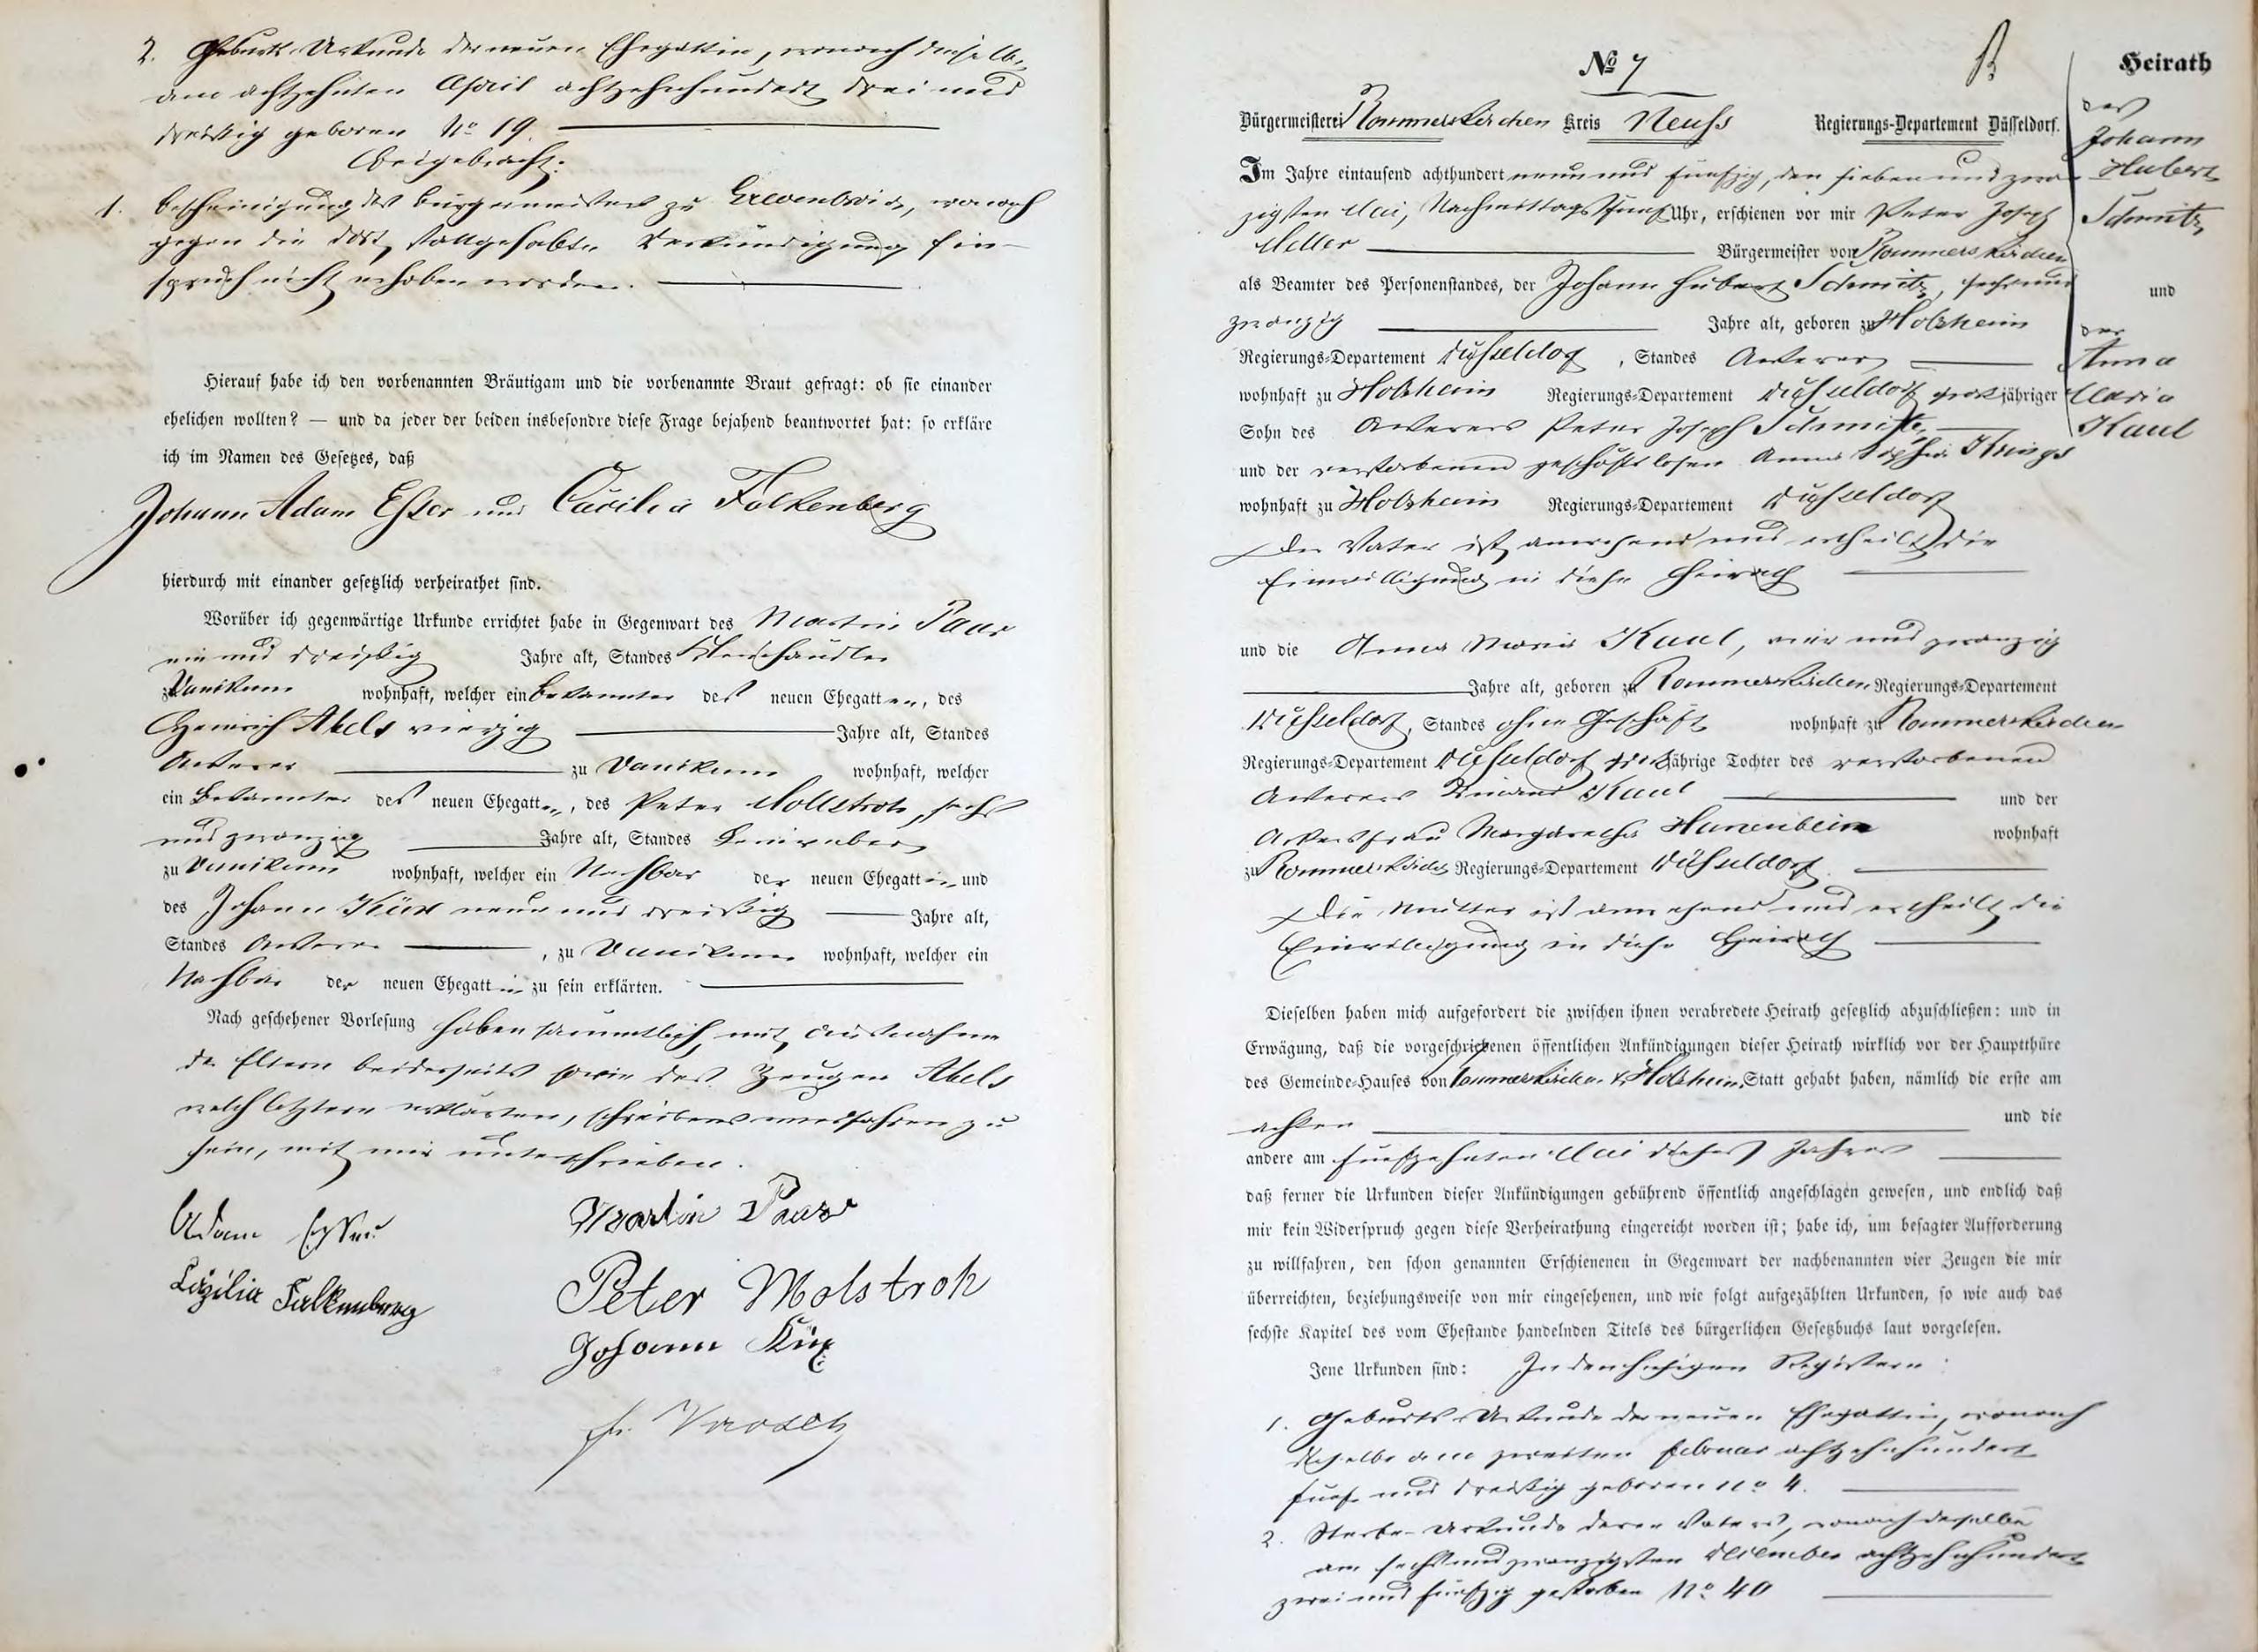 2. Geburts-Urkunde der neuen Ehegattin, wonach dieselbe
am achtzehnten April achtzehnhundert drei und
dreißig geboren No 19.
Beigebracht:
1. Bescheinigung des Bürgermeisters zu Grevenbroich, wonach
gegen die dort stattgehabte Verkündigung Ein-
spruch nicht erhoben worden.
Hierauf habe ich den vorbenannten Bräutigam und die vorbenannte Braut gefragt: ob sie einander
ehelichen wollten? — und da jeder der beiden insbesondre diese Frage bejahend beantwortet hat: so erkläre
ich im Namen des Gesetzes, daß
Johann Adam Esser und Cäcilia Falkenberg
hierdurch mit einander gesetzlich verheirathet sind.
Worüber ich gegenwärtige Urkunde errichtet habe in Gegenwart des Martin Paur
ein und dreißig Jahre alt, Standes Kleinhändler
zu Vanikum wohnhaft, welcher ein Bekannter des neuen Ehegatten, des
Heinrich Abels vierzig Jahre alt, Standes
Ackerer zu Vanikum wohnhaft, welcher
ein Bekannter des neuen Ehegatten, des Peter Mollstroh, sechs
und zwanzig Jahre alt, Standes
zu Vanikum wohnhaft, welcher ein Nachbar der neuen Ehegattin und
des Johann Küx neun und dreißig Jahre alt,
Standes Ackerer, zu Vanikum wohnhaft, welcher ein
Nachbar der neuen Ehegattin zu sein erklärten.
Nach geschehener Vorlesung haben sämmtlich, mit Ausnahme
der Eltern beiderseits sowie des Zeugen Abels
welch letztere erklärten, schreibensunerfahren zu
sein, mit mir unterschrieben.
Adam Esser Martin Paur
Cäzilia Falkenberg Peter Molstroh
Johann Küx
No 7
Heirath
Bürgermeisterei Rommerskirchen Kreis Neuss Regierungs-Departement Düsseldorf.
des
Johann
Hubert
Schmitz
und
der
Anna
Maria
Kaul
Im Jahre eintausend achthundert neun und fünfzig, den sieben und zwan-
zigsten Mai, Nachmittags fünf Uhr, erschienen vor mir Peter Joseph
Meller Bürgermeister von Rommerskirchen
als Beamter des Personenstandes, der Johann Hubert Schmitz, sechs und
zwanzig Jahre alt, geboren zu Holzheim
Regierungs-Departement Düsseldorf, Standes Ackerer
wohnhaft zu Holzheim Regierungs-Departement Düsseldorf großjähriger
Sohn des Ackerers Peter Joseph Schmitz,
und der verstorbenen geschäftslosen Anna Sophia Krings
wohnhaft zu Holzheim Regierungs-Departement Düsseldorf
Der Vater ist anwesend und ertheilt die
Einwilligung in diese Heirath
und die Anna Maria Kaul, vier und zwanzig
Jahre alt, geboren zu Rommerskirchen Regierungs-Departement
Düsseldorf, Standes ohne Geschäft wohnhaft zu Rommerskirchen
Regierungs-Departement Düsseldorf großjährige Tochter des verstorbenen
Ackerers Kaul und der
Ackersfrau Margaretha wohnhaft
zu Rommerskirchen Regierungs-Departement Düsseldorf.
Die Mutter ist anwesend und ertheilt die
Einwilligung in diese Heirath
Dieselben haben mich aufgefordert die zwischen ihnen verabredete Heirath gesetzlich abzuschließen: und in
Erwägung, daß die vorgeschriebenen öffentlichen Ankündigungen dieser Heirath wirklich vor der Hauptthüre
des Gemeinde-Hauses von Rommerskirchen & Holzheim Statt gehabt haben, nämlich die erste am
achten und die
andere am fünfzehnten Mai dieses Jahres
daß ferner die Urkunden dieser Ankündigungen gebührend öffentlich angeschlagen gewesen, und endlich daß
mir kein Widerspruch gegen diese Verheirathung eingereicht worden ist; habe ich, um besagter Aufforderung
zu willfahren, den schon genannten Erschienenen in Gegenwart der nachbenannten vier Zeugen die mir
überreichten, beziehungsweise von mir eingesehenen, und wie folgt aufgezählten Urkunden, so wie auch das
sechste Kapitel des vom Ehestande handelnden Titels des bürgerlichen Gesetzbuchs laut vorgelesen.
Jene Urkunden sind: In den hiesigen Registern:
1. Geburts-Urkunde der neuen Ehegattin, wonach
dieselbe am zweiten Februar achtzehnhundert
fünf und dreißig geboren No 4.
2. Sterbe-Urkunde deren Vaters, wonach derselbe
am sechsundzwanzigsten Dezember achtzehnhundert
zwei und fünfzig gestorben No 40